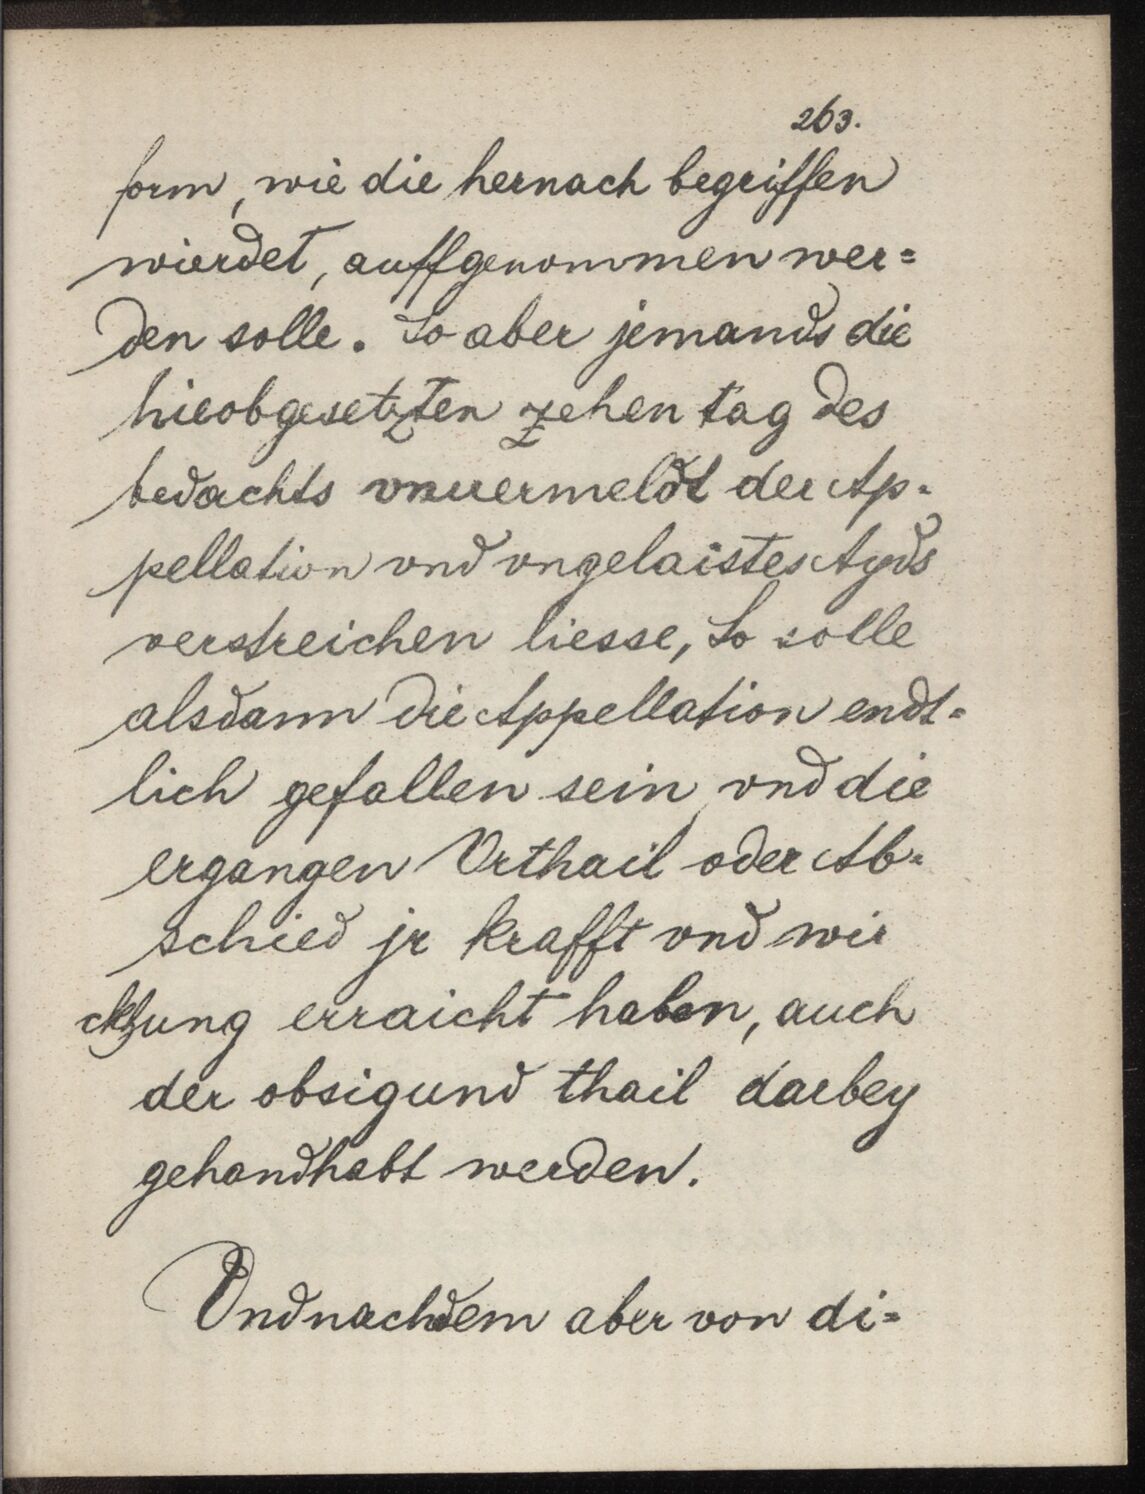 263.
form, wie die hernach begriffen
wierdet, auffgenommen wer=
den solle. So aber jemands die
hieobgesetzten zehen tag des
bedachts vnuermeldt der Ap=
pellation vnd vngelaistes Ayds
verstreichen liesse, So solle
alsdann die Appellation endt=
lich gefallen sein vnd die
ergangen Vrthail oder Ab=
schied jr krafft vnd wir
ckhung erraicht haben, auch
der obsigund thail darbey
gehandhabt werden.
Vnd nachdem aber von di=